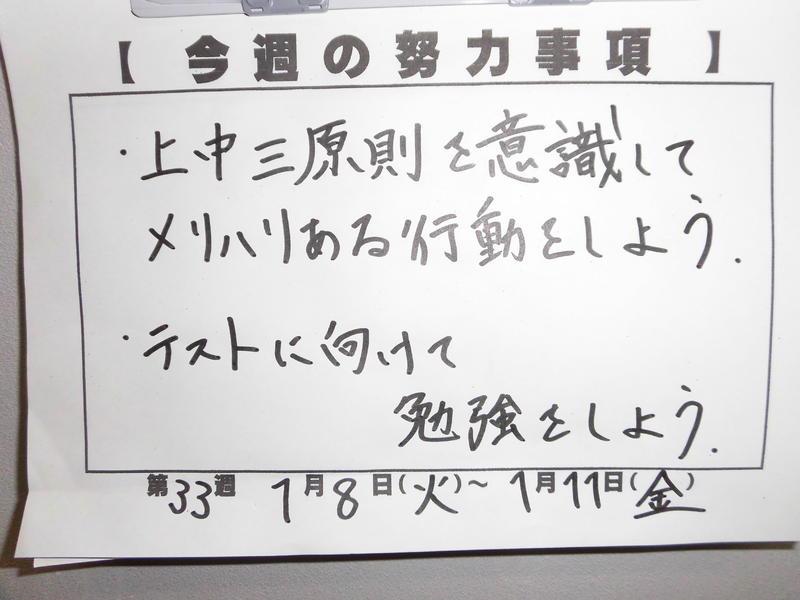 【今週の努力事項】
・上中三原則を意識して
メリハリある行動をしよう.
・テストに向けて
勉強をしよう.
第33週 1月8日(火)~1月11日(金)